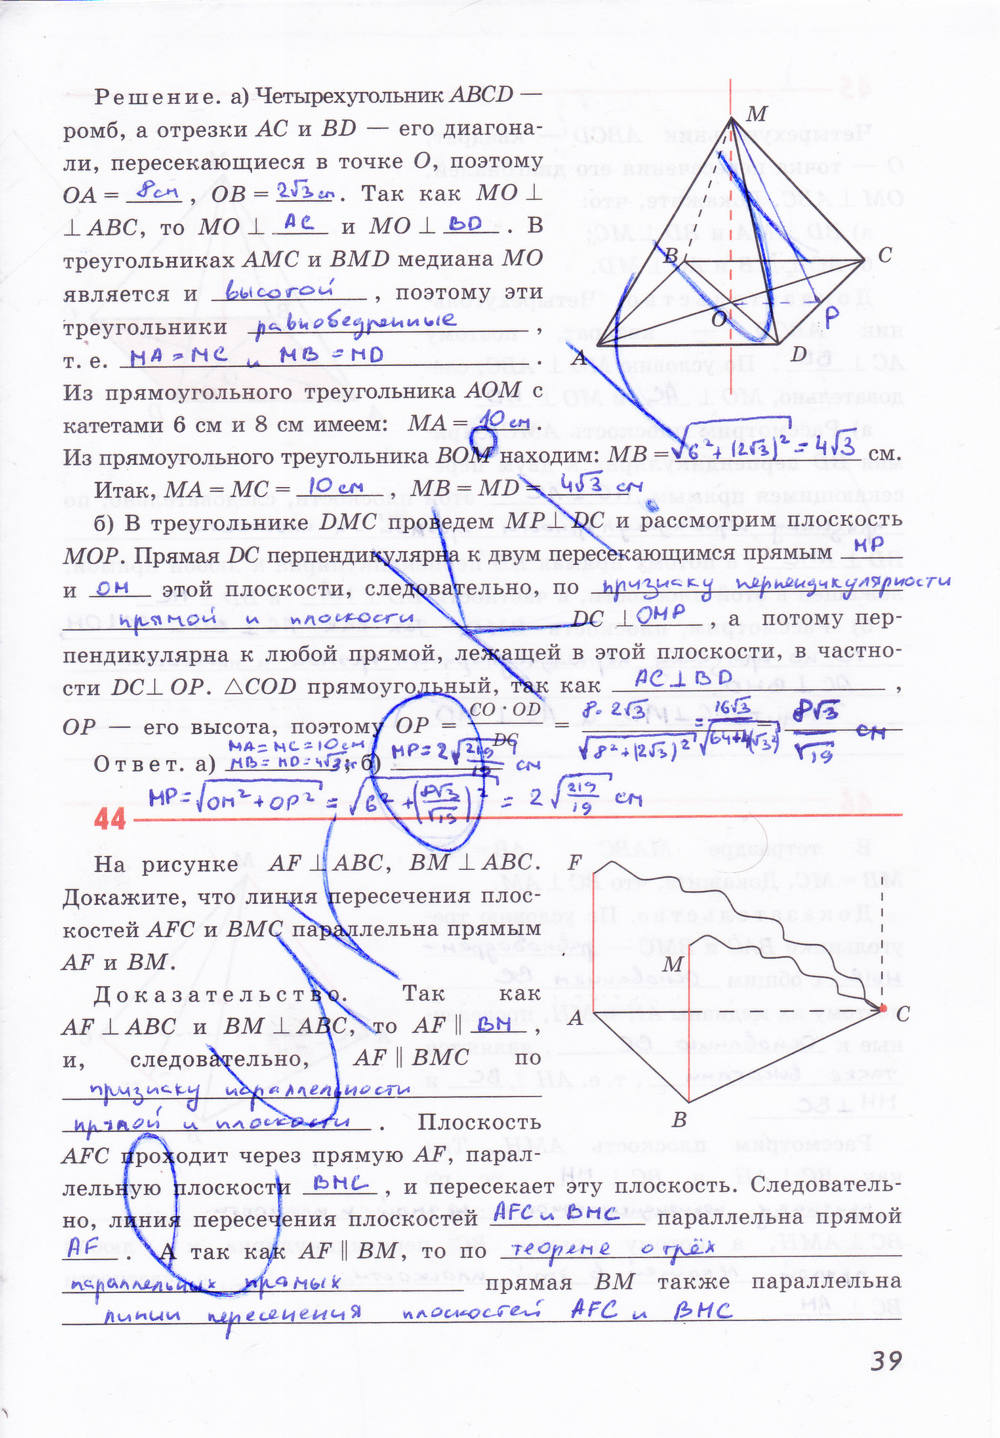 Решение. а) Четырехугольник ABCD —
ромб, а отрезки AC и BD — его диагона-
ли, пересекающиеся в точке O, поэтому
OA = 8см , OB = 2√3 см. Так как MO ⊥
⊥ ABC, то MO ⊥ AC и MO ⊥ BD . В
треугольниках AMC и BMD медиана MO
является и высотой , поэтому эти
треугольники равнобедренные ,
т. е. MA = MC и MB = MD .
Из прямоугольного треугольника AOM с
катетами 6 см и 8 см имеем: MA = 10 см .
Из прямоугольного треугольника BOM находим: MB = √(6² + (2√3)²) = 4√3 см.
Итак, MA = MC = 10 см , MB = MD = 4√3 см
б) В треугольнике DMC проведем MP ⊥ DC и рассмотрим плоскость
MOP. Прямая DC перпендикулярна к двум пересекающимся прямым MP
и OM этой плоскости, следовательно, по признаку перпендикулярности
прямой и плоскости DC ⊥ OMP , а потому пер-
пендикулярна к любой прямой, лежащей в этой плоскости, в частно-
сти DC ⊥ OP. △COD прямоугольный, так как AC ⊥ BD ,
OP — его высота, поэтому OP = CO · OD / DC = 8 · 2√3 / √(8² + (2√3)²) = 16√3 / √(64+4(√3²) = 8√3 / √19 см
Ответ. а) MA = MC = 10 см MB = MD = 4√3 ; б) MP = 2√(219/19) см
MP = √(OM² + OP²) = √(6² + (8√3/√19)²) = 2√(219/19) см
M
B
C
O
P
A
D
44
На рисунке AF ⊥ ABC, BM ⊥ ABC.
Докажите, что линия пересечения плос-
костей AFC и BMC параллельна прямым
AF и BM.
Доказательство. Так как
AF ⊥ ABC и BM ⊥ ABC, то AF ∥ BM ,
и, следовательно, AF ∥ BMC по
признаку параллельности
прямой и плоскости . Плоскость
AFC проходит через прямую AF, парал-
лельную плоскости BMC , и пересекает эту плоскость. Следователь-
но, линия пересечения плоскостей AFC и BMC параллельна прямой
AF . А так как AF ∥ BM, то по теореме о трёх
параллельных прямых прямая BM также параллельна
линии пересечения плоскостей AFC и BMC
F
M
A
C
B
39